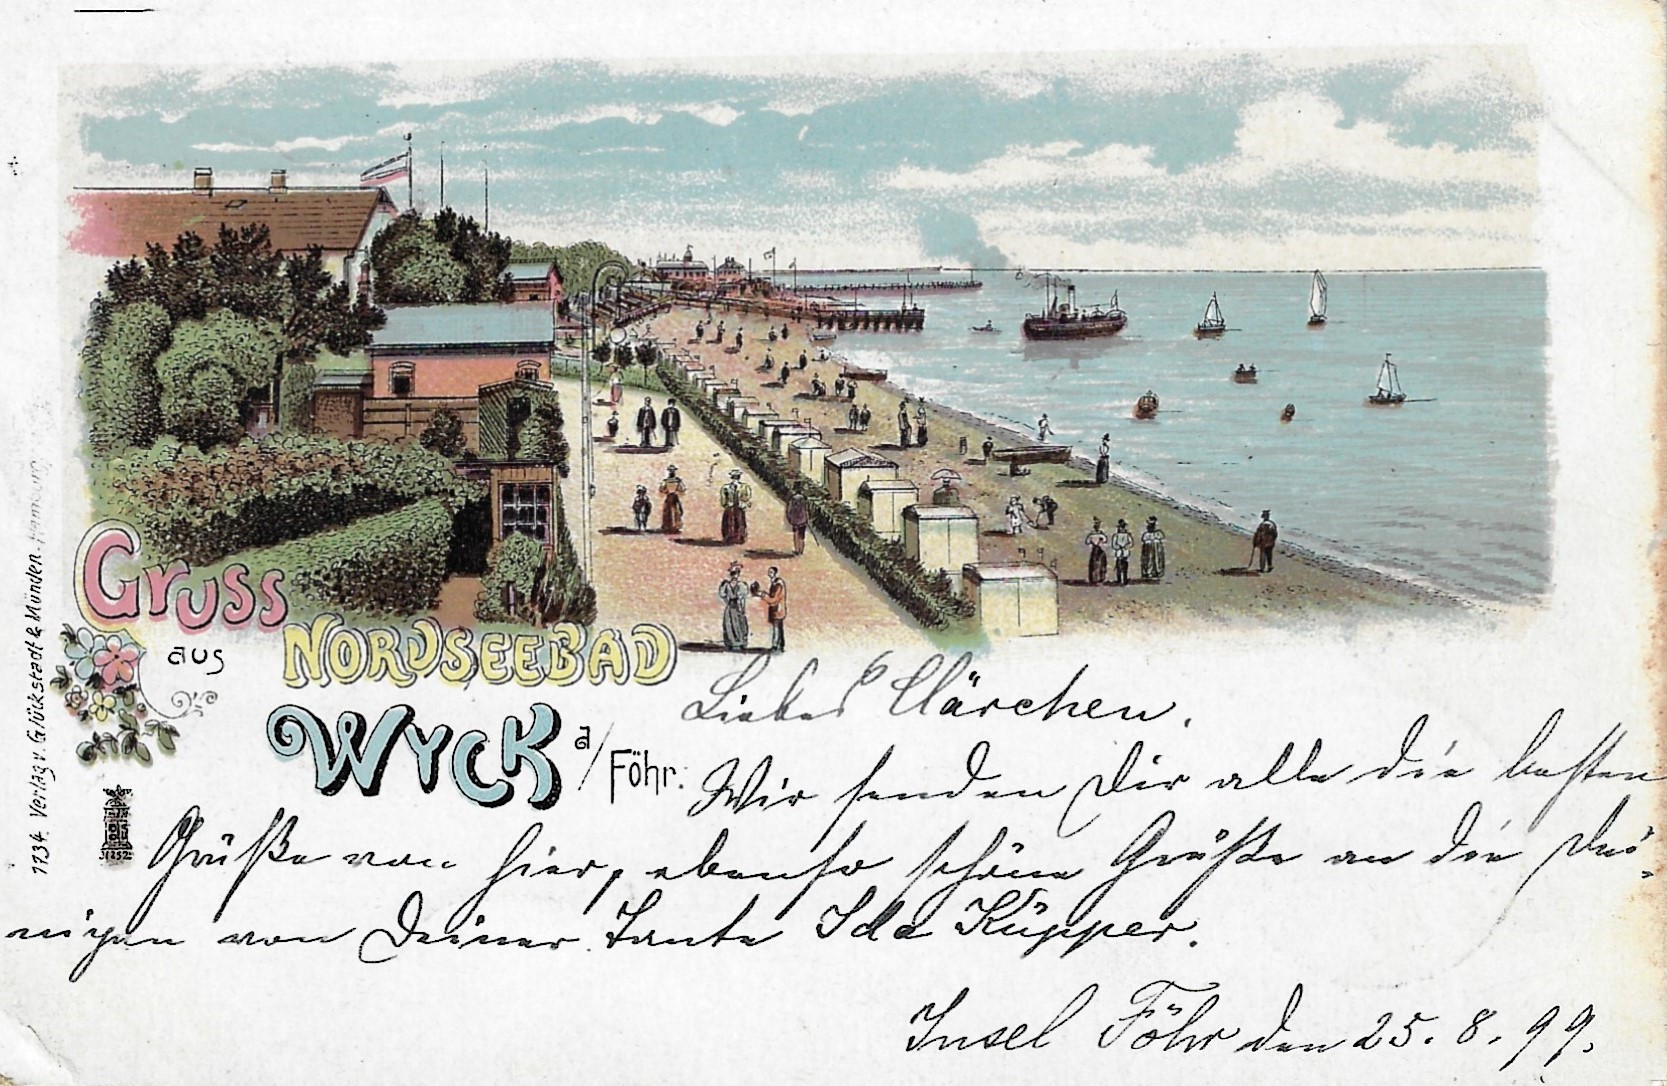 Gruss
aus NORDSEEBAD
WYCK a/Föhr.
Liebes Clärchen.
Wir senden Dir alle die besten
Grüße von hier, ebenso schöne Grüße an die Dei-
nigen von Deiner Tante Ida Küpper.
Insel Föhr den 25.8.99.
1134. Verlag v. Glückstadt & Münden. Hamburg.
31252